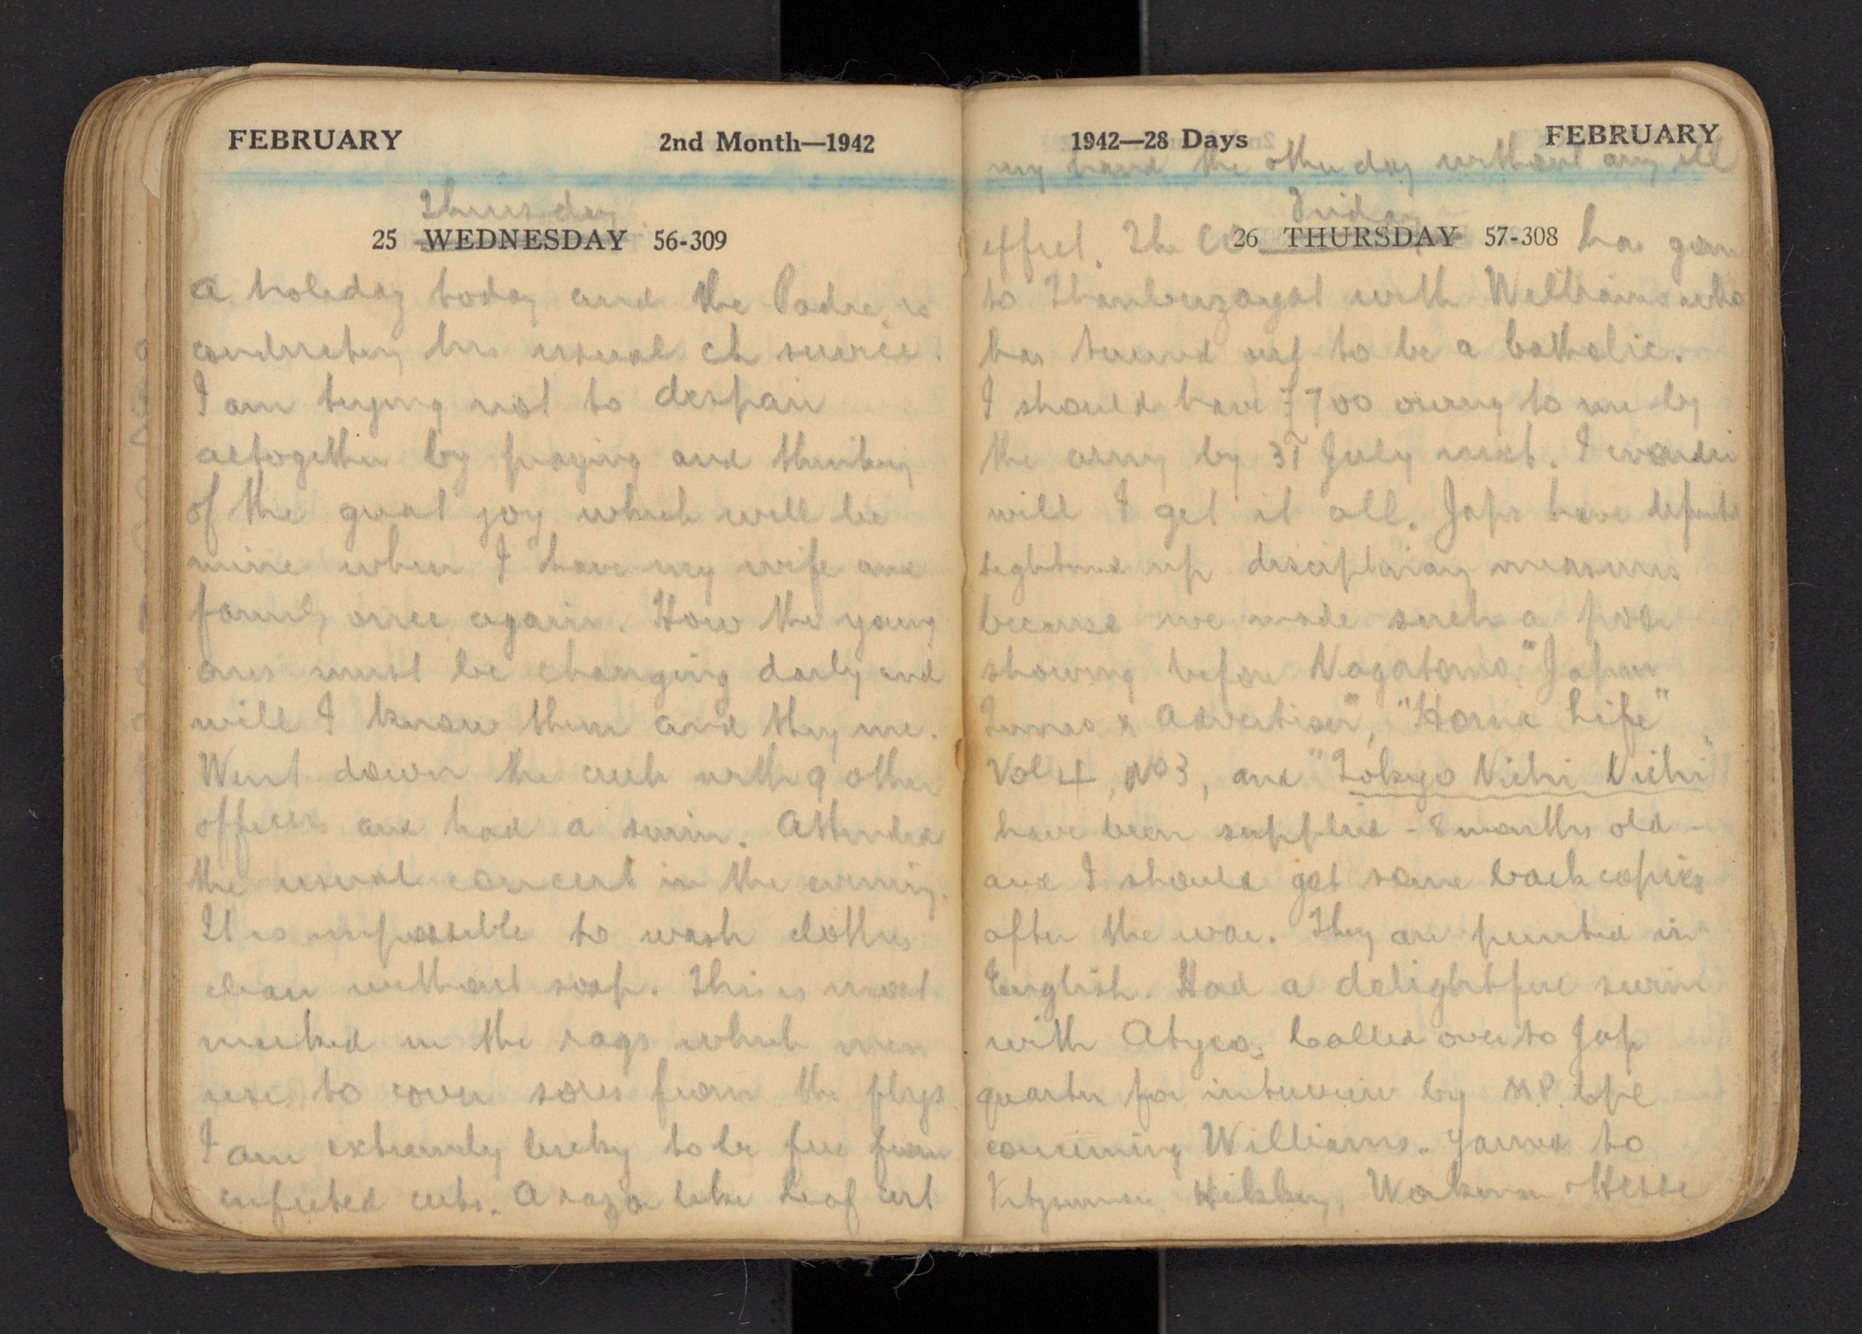 FEBRUARY 2nd Month—1942
Thursday
25 WEDNESDAY 56-309
A holiday today and the Padre is
conducting his usual ch service.
I am trying not to despair
altogether by praying and thinking
of the great joy which will be
mine when I have my wife and
family once again. How the young
ones must be changing daily and
will I know them and they me.
Went down the creek with 9 other
officers and had a swim. Attended
the usual concert in the evening.
It is impossible to wash clothes
clean without soap. This is most
marked in the rags which men
use to cover sores from the flys.
I am extremely lucky to be free from
infected cuts. A razor like leaf cut
1942—28 Days FEBRUARY
my hand the other day without any ill
Friday
effect. The CO 26 THURSDAY 57-308 has gone
to Thanbuzayat with Williams who
has turned out to be a Catholic.
I should have £700 owing to me by
the army by 31 July next. I wonder
will I get it all. Japs have
tightened up disciplinary measures
because we made such a poor
showing before Nagatomo. "Japan
Times & Advertiser", "Home Life"
Vol 4, No 3, and "Tokyo Nichi Nichi"
have been supplied - 8 months old -
and I should get some back copies
after the war. They are printed in
English. Had a delightful swim
with Atyeo. Called over to Jap
quarters for interview by M.P. Cpl
concerning Williams. Yarned to
Hekkey, Workman Hesse